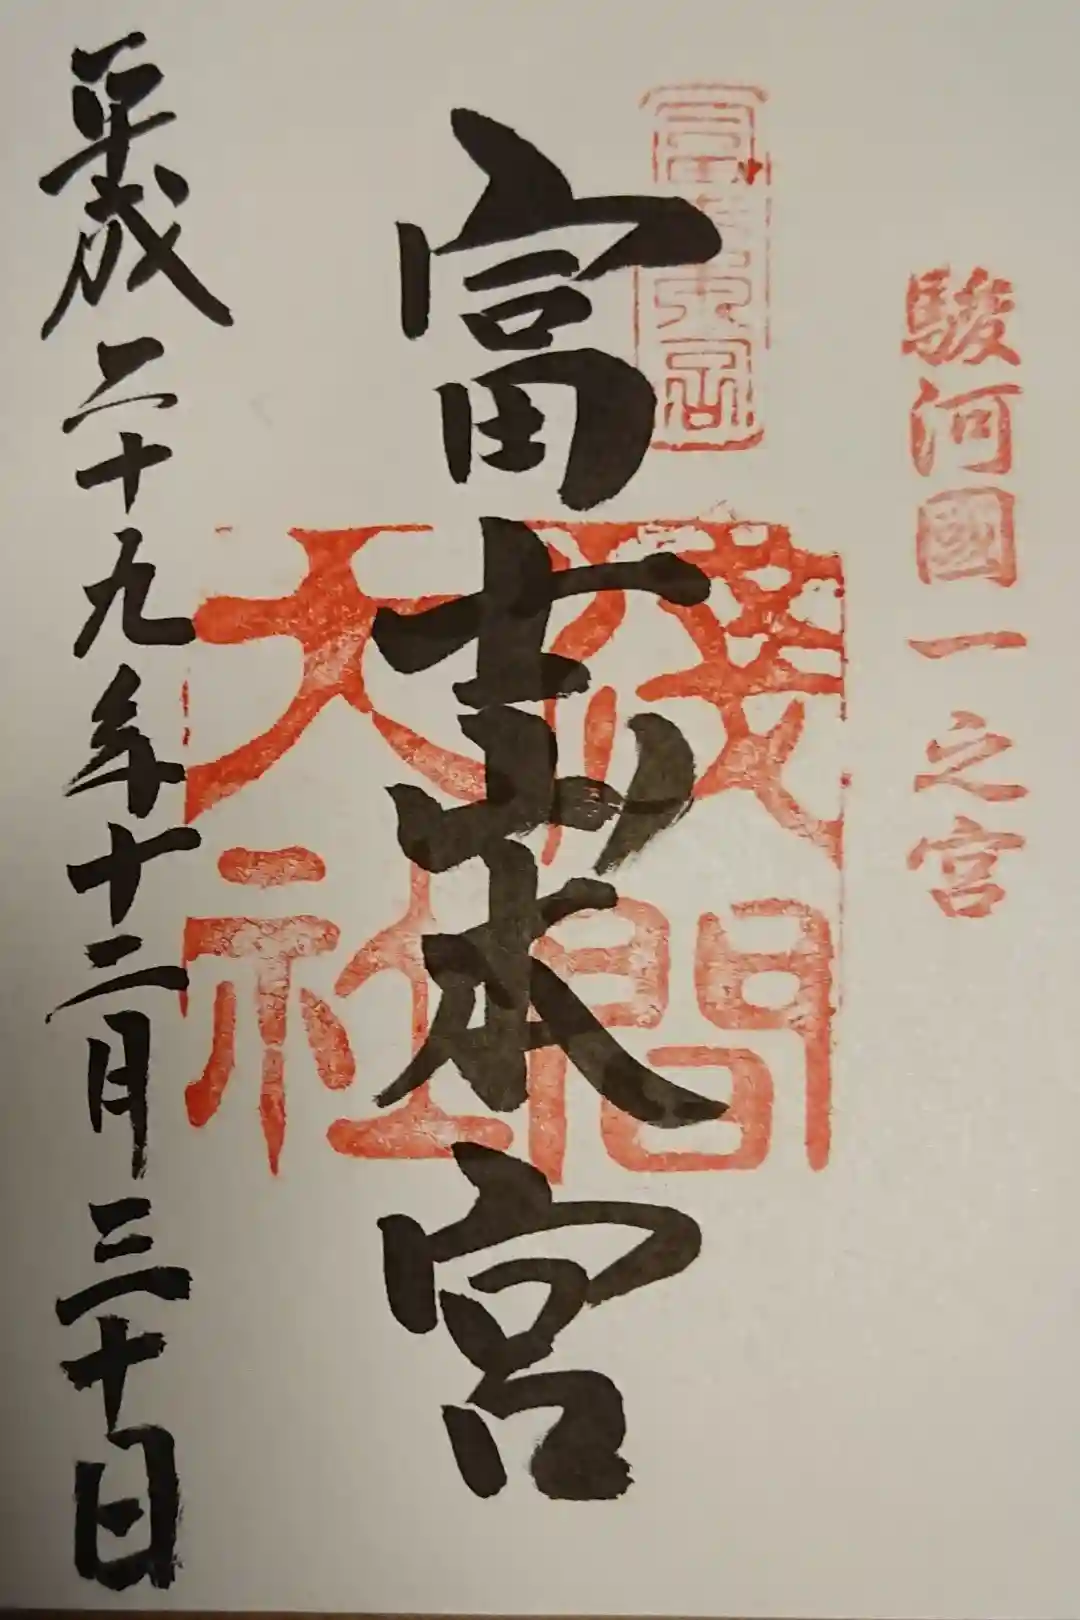 駿河國一之宮
富士山本宮
淺間大社
富士山本宮
平成二十九年十二月三十日